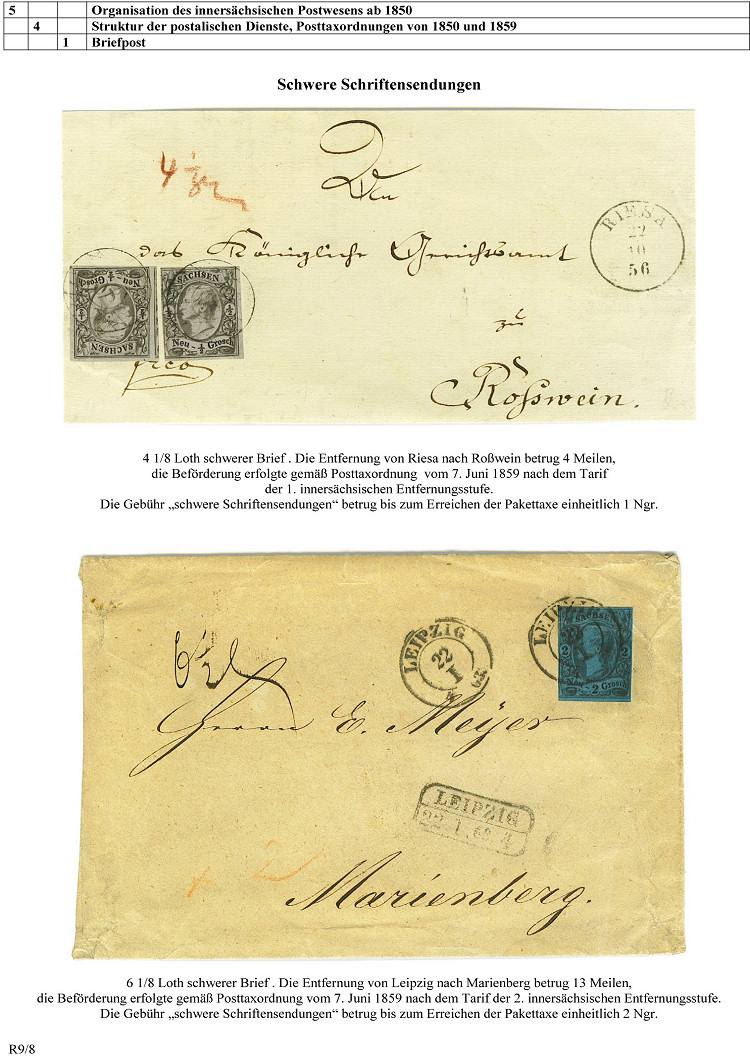 5 Organisation des innersächsischen Postwesens ab 1850
4 Struktur der postalischen Dienste, Posttaxordnungen von 1850 und 1859
1 Briefpost
Schwere Schriftensendungen
Den
das Königliche Gerichtsamt
zu
Roßwein.
RIESA
22
10
56
SACHSEN
Neu - ½ Grosch
SACHSEN
Neu - ½ Grosch
frco
4 1/8 Loth schwerer Brief . Die Entfernung von Riesa nach Roßwein betrug 4 Meilen,
die Beförderung erfolgte gemäß Posttaxordnung vom 7. Juni 1859 nach dem Tarif
der 1. innersächsischen Entfernungsstufe.
Die Gebühr „schwere Schriftensendungen“ betrug bis zum Erreichen der Pakettaxe einheitlich 1 Ngr.
LEIPZIG
22
I
4
63
LEIPZIG
SACHSEN
2 2
Neu - 2 Grosch
Herrn E. Meÿer
LEIPZIG
Marienberg.
6 1/8 Loth schwerer Brief . Die Entfernung von Leipzig nach Marienberg betrug 13 Meilen,
die Beförderung erfolgte gemäß Posttaxordnung vom 7. Juni 1859 nach dem Tarif der 2. innersächsischen Entfernungsstufe.
Die Gebühr „schwere Schriftensendungen“ betrug bis zum Erreichen der Pakettaxe einheitlich 2 Ngr.
R9/8